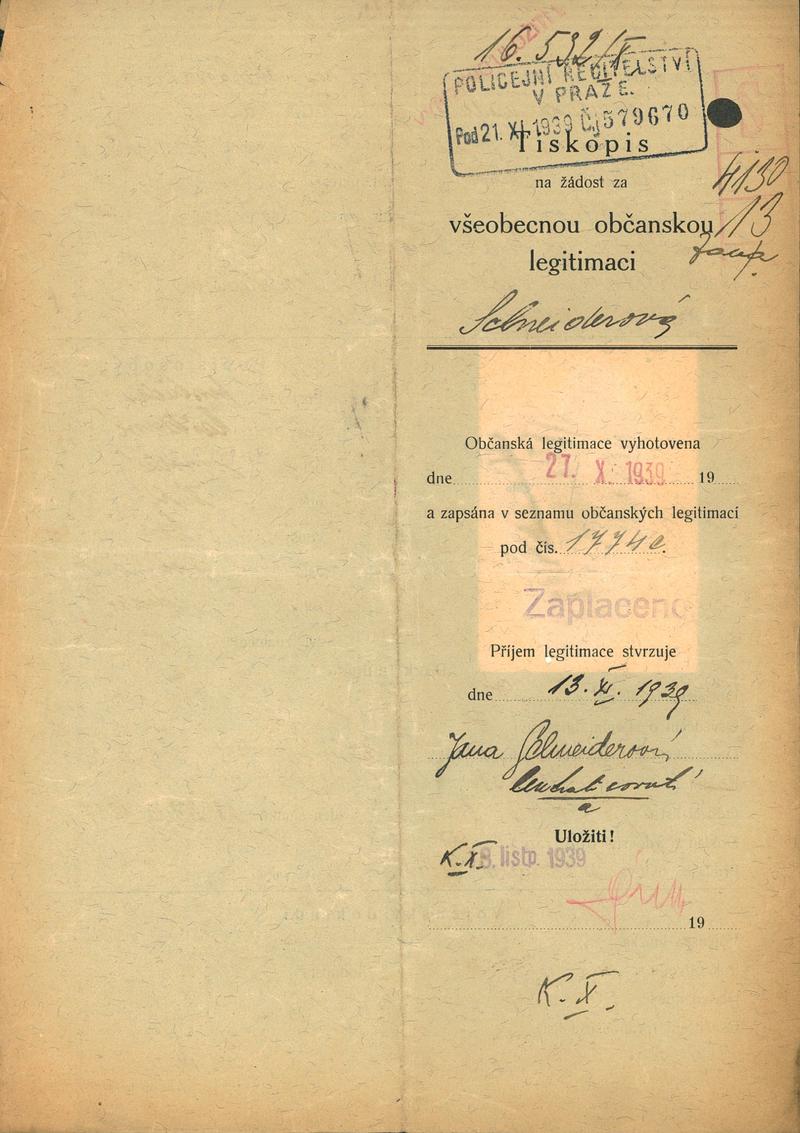 16.532/X
POLICEJNÍ ŘEDITELSTVÍ
V PRAZE.
Pod 21. XI 1939 Čj 579670
Tiskopis
na žádost za
4130
všeobecnou občanskou
13
legitimaci
Schneiderová
Občanská legitimace vyhotovena
dne 27. X. 1939 19
a zapsána v seznamu občanských legitimací
pod čís. 1774
Zaplaceno
Příjem legitimace stvrzuje
dne 13. XI. 1939
Jana Schneiderová
a
Uložiti!
K.X. 8. listp. 1939
19
K. X.